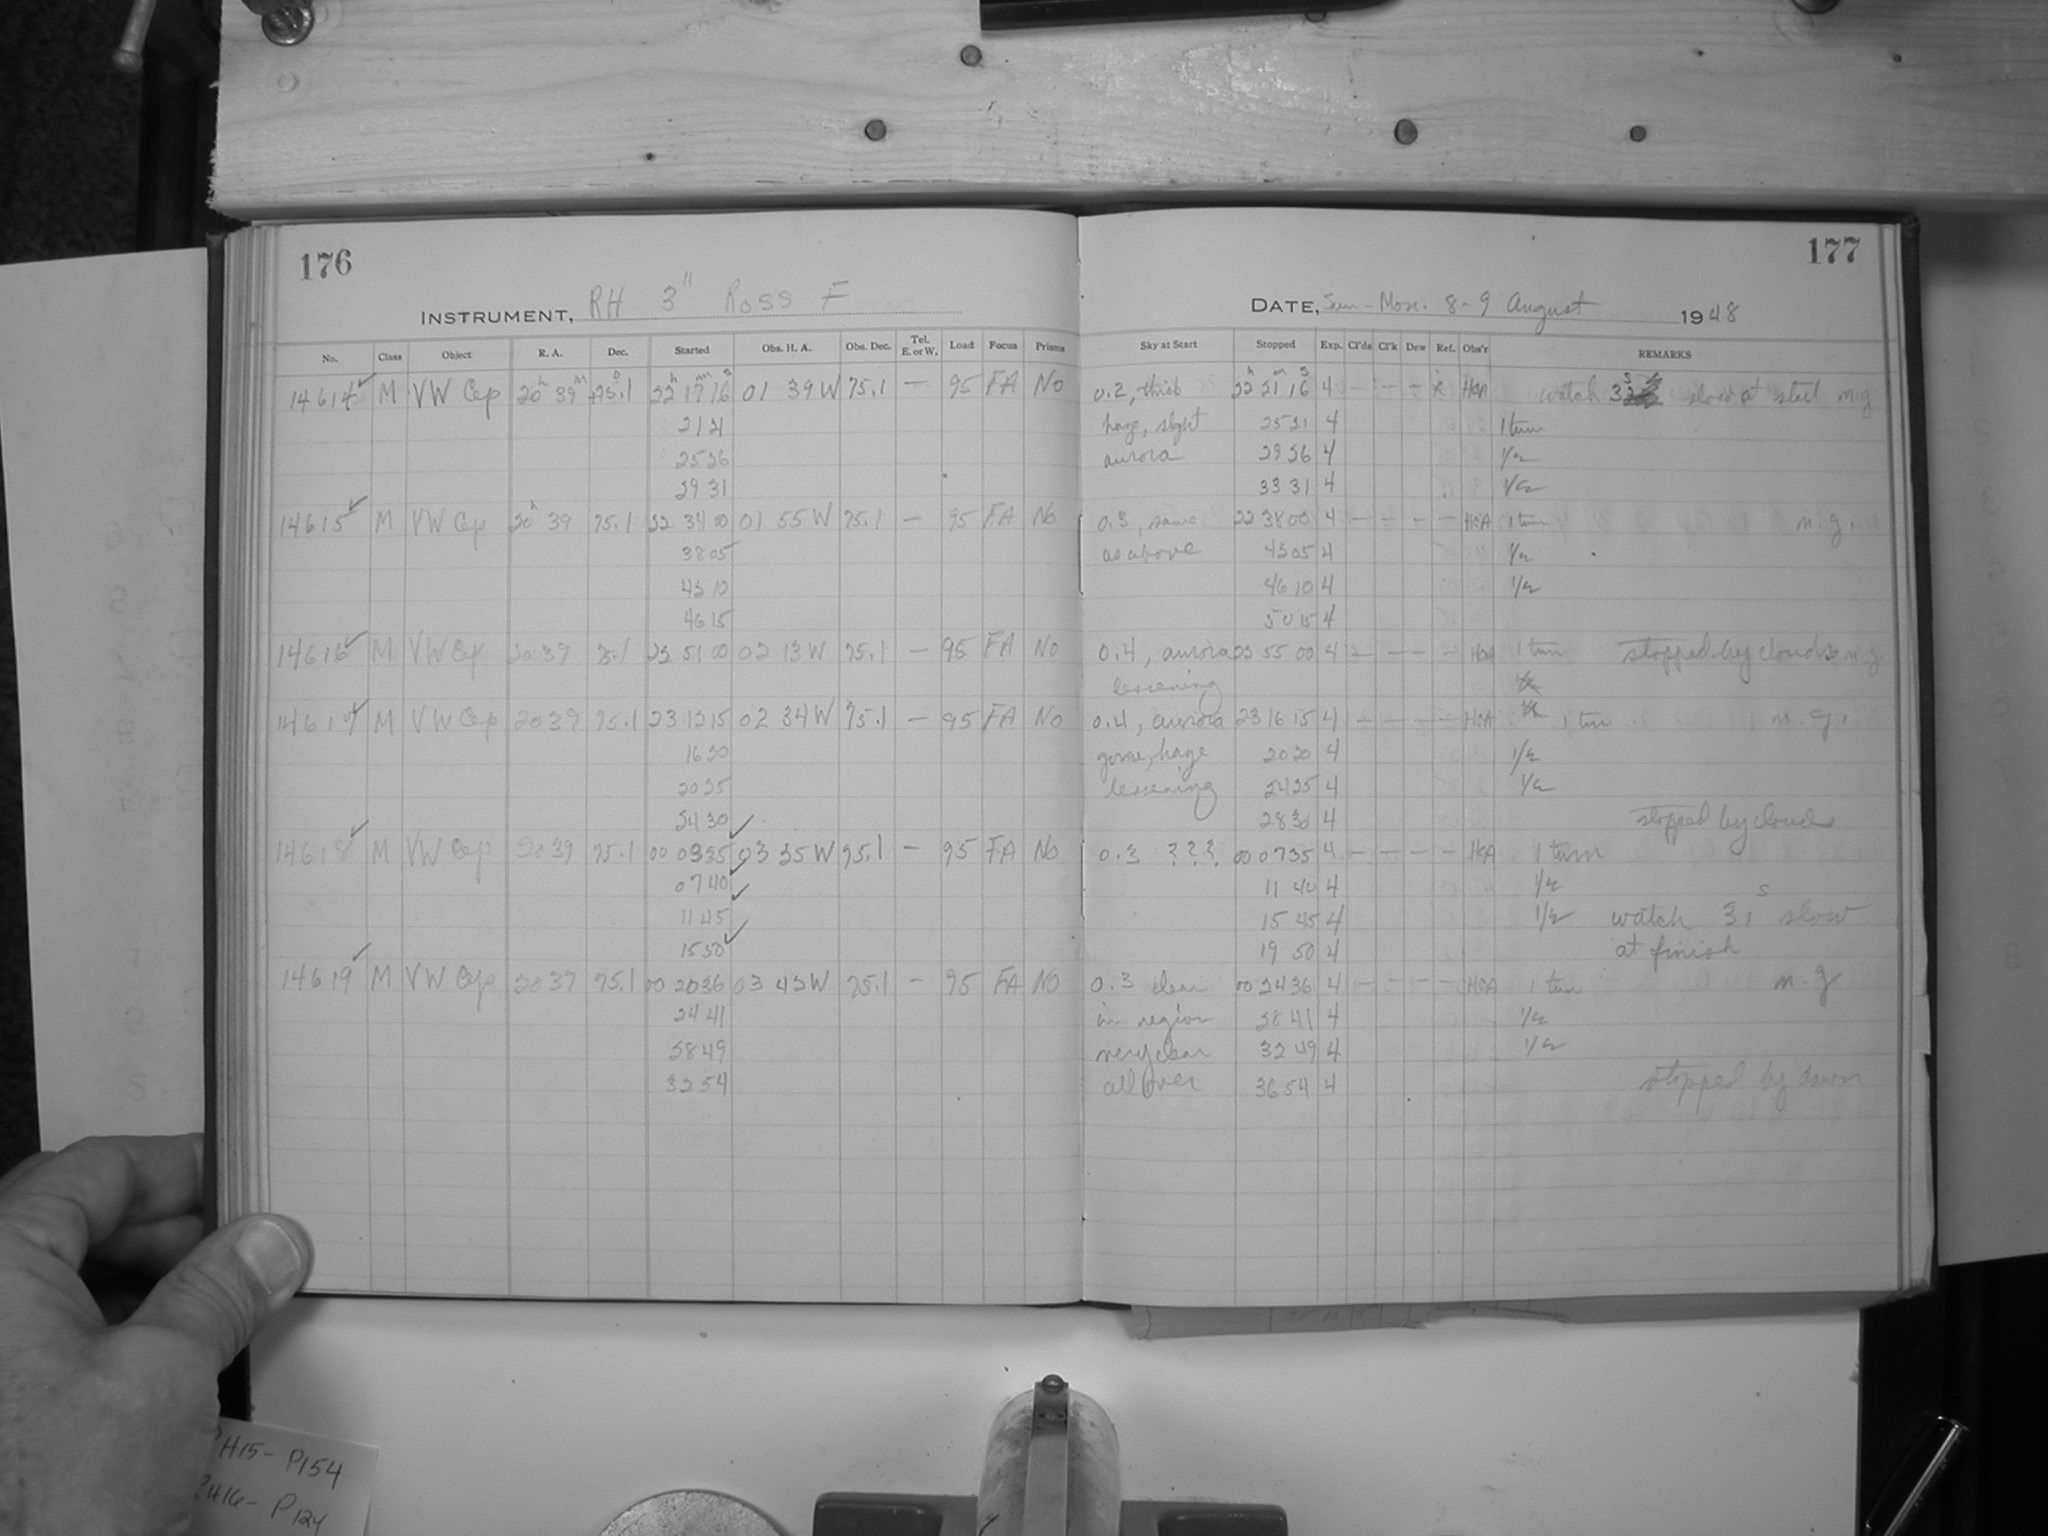 176
177
INSTRUMENT, RH 3" Ross F
DATE, Sun-Mon. 8-9 August 1948
No. Class Object R. A. Dec. Started Obs. H. A. Obs. Dec. Tel. E. or W. Load Focus Prisms Sky at Start Stopped Exp. Cl'ds Cl'k Dew Ref. Obs'r REMARKS
14614 M VW Cep 20h 39m +75.1 22h 17m 16s 01 39 W 75.1 — 95 FA No 0.2, thick 22h 21m 16s 4 — — — HCA watch slow at start m.g
2121 haze, slght 2521 4 1 turn
2526 aurora 2926 4 1/2
2931 3331 4 1/2
14615 M VW Cep 20h 39 75.1 22 34 00 01 55 W 75.1 — 95 FA No 0.3, same 22 38 00 4 — — — — HCA 1 turn m.g.
3805 as above 4205 4 1/2
4210 46 10 4 1/2
4615 50 15 4
14616 M VW Cep 20 39 75.1 22 51 00 02 13 W 75.1 — 95 FA No 0.4, aurora 22 55 00 4 — — — — HCA 1 turn stopped by clouds m.g.
lessening
14617 M VW Cep 20 39 75.1 23 12 15 02 34 W 75.1 — 95 FA No 0.4, aurora 23 16 15 4 — — — — HCA 1 turn m.g.
1620 gone, haze 2020 4 1/2
2025 lessening 2425 4 1/2
2430 2830 4 stopped by cloud
14618 M VW Cep 20 39 75.1 00 0335 03 25 W 75.1 — 95 FA No 0.3 ??? 00 0735 4 — — — — HCA 1 turn
0740 11 40 4 1/2
1145 15 45 4 1/2 watch 31s slow
1550 19 50 4 at finish
14619 M VW Cep 20 39 75.1 00 2036 03 42 W 75.1 — 95 FA No 0.3 clear 00 2436 4 — — — — HCA 1 turn m.g
2441 in region 2841 4 1/2
2849 very clear 32 49 4 1/2
3254 all over 3654 4 stopped by dawn
H15- P154
H16- P124